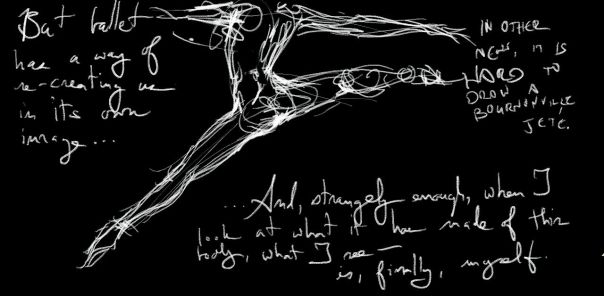 But ballet
has a way of
re-creating us
in its own
image...
IN OTHER
NEWS, IT IS
HARD TO
DRAW A
BOURNONVILLE
JETE.
...And, strangely enough, when I
look at what it has made of this
body, what I see—
is, finally, myself.